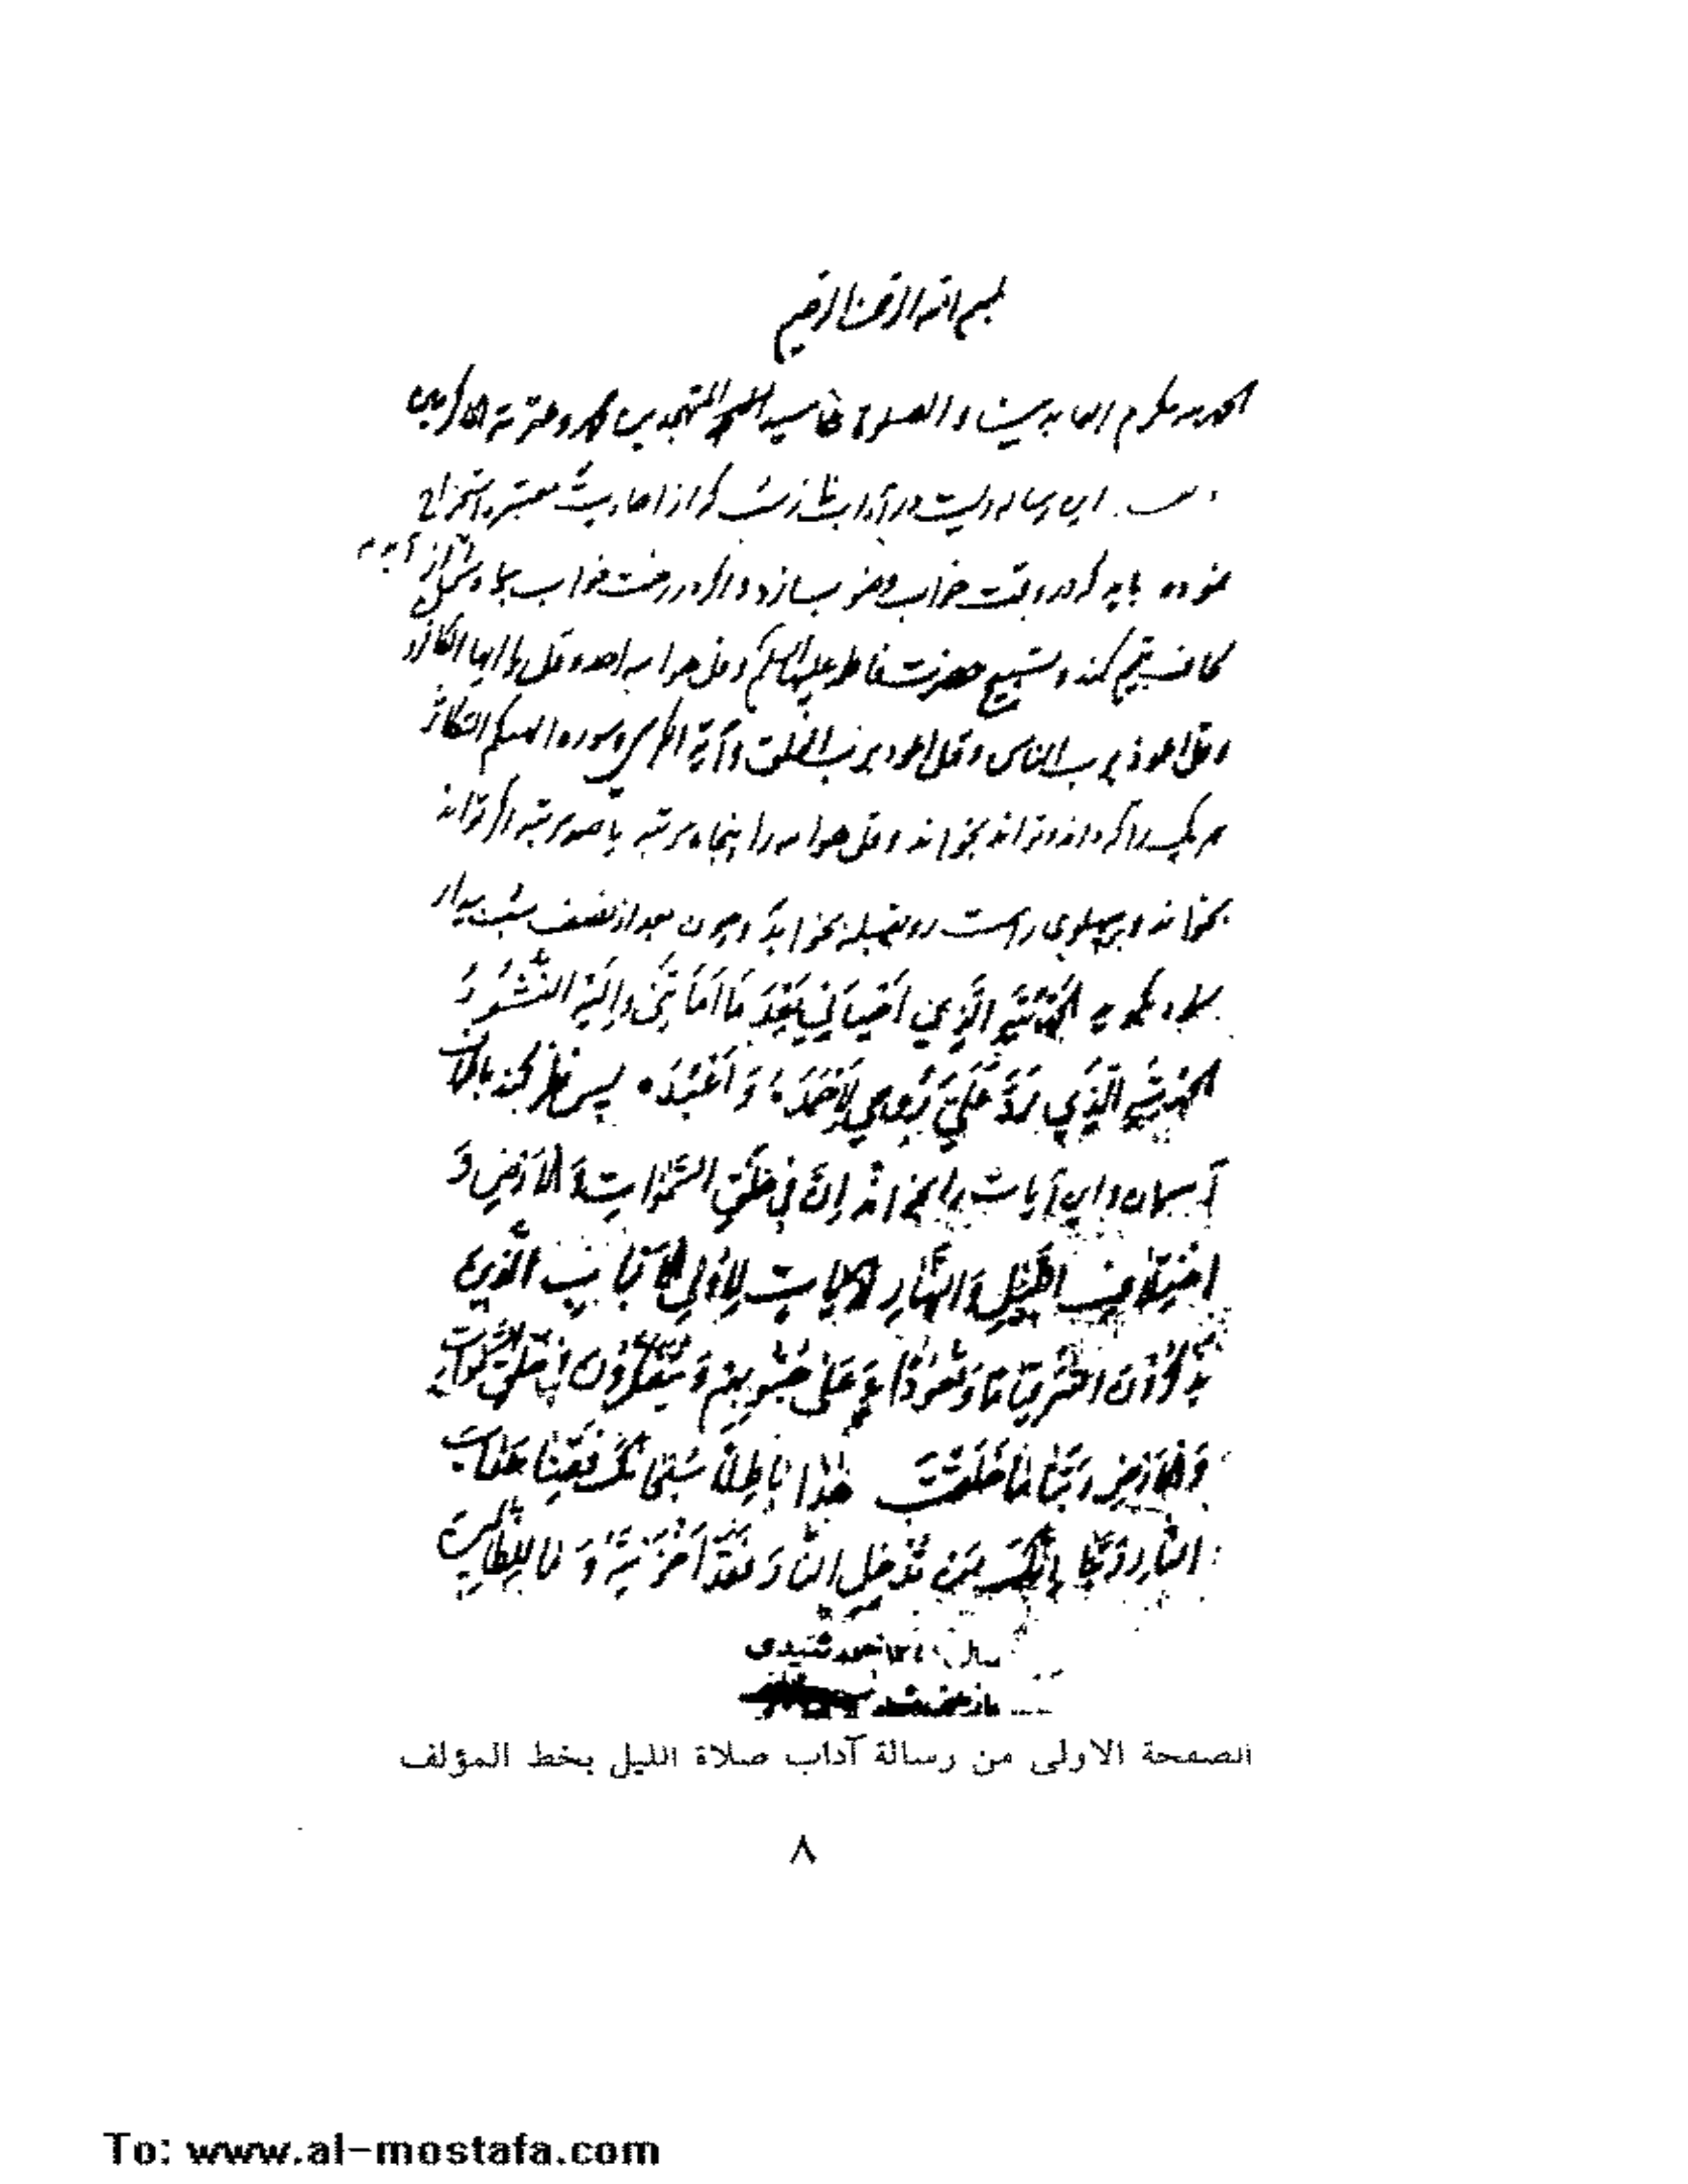 بسم الله الرحمن الرحيم
الحمد لله مكرم العابدين والصلوة على سيد المتهجدين محمد وعترته الاكرمين
اين رساله ايست در آداب نماز شب كه از احاديث معتبره استخراج
نموده بايد كه در وقت خواب وضو بسازد و اگر در رخت خواب بيادش آيد
لحاف تيمم كند و تسبيح حضرت فاطمه عليها السلام و قل هو الله احد و قل يا ايها الكافرون
و قل اعوذ برب الناس و قل اعوذ برب الفلق و آية الكرسي و سوره الهيكم التكاثر
هر يك را كه داند و تواند بخواند و قل هو الله را پنجاه مرتبه يا صد مرتبه اگر تواند
بخواند و بر پهلوى راست رو بقبله بخوابد و چون بعد از نصف شب بيدار
شود بگويد اَلْحَمْدُ لِلّهِ الَّذِي اَحْيَانِي بَعْدَ مَا اَمَاتَنِي وَاِلَيْهِ النُّشُورُ
اَلْحَمْدُ لِلّهِ الَّذِي رَدَّ عَلَيَّ رُوحِي لِاَحْمَدَهُ وَ اَعْبُدَهُ پس نظر كند باطراف
آسمان و اين آيات را بخواند اِنَّ فِي خَلْقِ السَّمٰوَاتِ وَ الْاَرْضِ وَ
اخْتِلَافِ اللَّيْلِ وَ النَّهَارِ لَآيَاتٍ لِاُولِي الْاَلْبَابِ الَّذِينَ
يَذْكُرُونَ اللهَ قِيَامًا وَ قُعُودًا وَ عَلَى جُنُوبِهِمْ وَ يَتَفَكَّرُونَ فِي خَلْقِ السَّمٰوَاتِ
وَ الْاَرْضِ رَبَّنَا مَا خَلَقْتَ هٰذَا بَاطِلًا سُبْحَانَكَ فَقِنَا عَذَابَ
النَّارِ رَبَّنَا اِنَّكَ مَنْ تُدْخِلِ النَّارَ فَقَدْ اَخْزَيْتَهُ وَ مَا لِلظَّالِمِينَ
الصفحة الاولى من رسالة آداب صلاة الليل بخط المؤلف
٨
To: www.al-mostafa.com